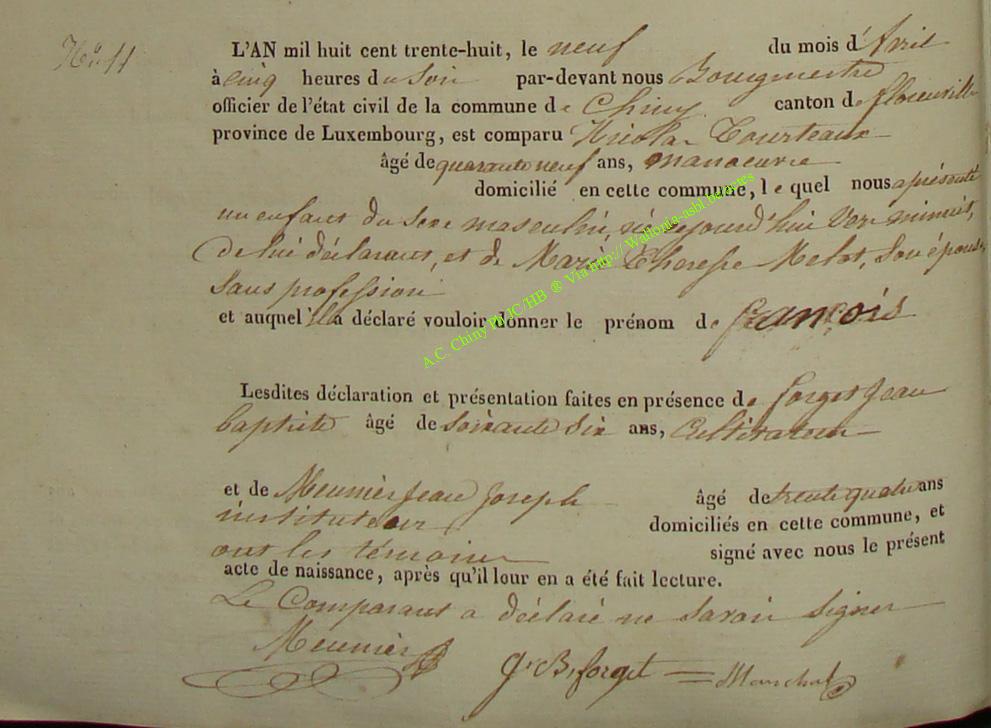 No. 11
L'AN mil huit cent trente-huit, le neuf du mois d'Avril
à cinq heures du Soir par-devant nous Bourgmestre
officier de l'état civil de la commune de Chiny canton de florenville
province de Luxembourg, est comparu Nicolas Tourteaux
âgé de quarante neuf ans, manoeuvre
domicilié en cette commune, le quel nous a présenté
un enfant du Sexe masculin, né cejourd'hui vers minuit,
de lui déclarant, et de Marie Therese Melot, Son épouse,
Sans profession
et auquel il a déclaré vouloir donner le prénom de françois
Lesdites déclaration et présentation faites en présence de forget Jean
baptiste âgé de Soixante Six ans, Cultivateur
et de Meunier Jean Joseph âgé de trente quatre ans
instituteur domiciliés en cette commune, et
ont les témoins signé avec nous le présent
acte de naissance, après qu'il leur en a été fait lecture.
Le Comparant a déclaré ne Savoir Signer
Meunier J. B. forget Marchal
A.C. Chiny Ph JC/HB ® Via http:// Wallonia-asbl.be/actes